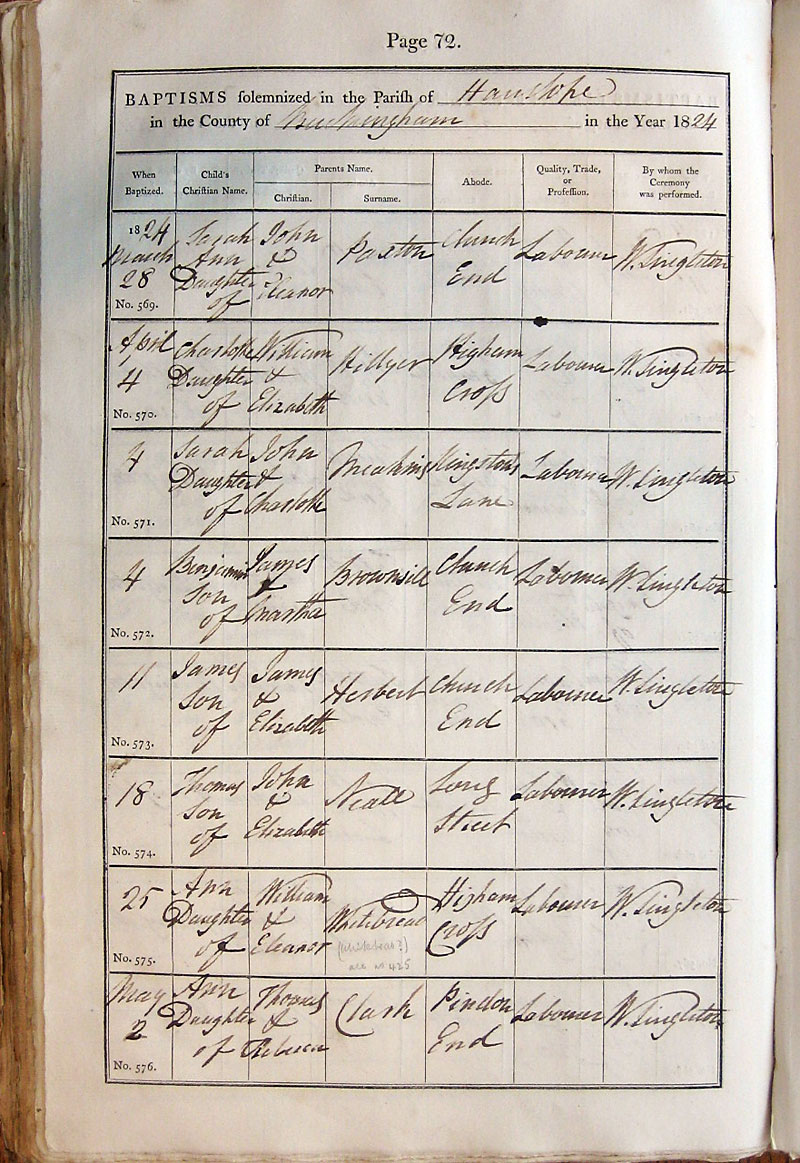 Page 72.
BAPTISMS solemnized in the Parish of Hanslope
in the County of Buckingham in the Year 1824
When Baptized. Child's Christian Name. Parents Name. Christian. Surname. Abode. Quality, Trade, or Profession. By whom the Ceremony was performed.
1824 March 28 No. 569. Sarah Ann Daughter of John & Eleanor Paxton Church End Labourer W. Singleton
April 4 No. 570. Charlotte Daughter of William & Elizabeth Hillyer Higham Cross Labourer W. Singleton
4 No. 571. Sarah Daughter of John & Charlotte Meakins Kingstons Lane Labourer W. Singleton
4 No. 572. Benjamin Son of James & Martha Brownsill Church End Labourer W. Singleton
11 No. 573. James Son of James & Elizabeth Herbert Church End Labourer W. Singleton
18 No. 574. Thomas Son of John & Elizabeth Neale Long Street Labourer W. Singleton
25 No. 575. Ann Daughter of William & Eleanor Whitebread Higham Cross Labourer W. Singleton
May 2 No. 576. Ann Daughter of Thomas & Rebecca Clark Pindon End Labourer W. Singleton